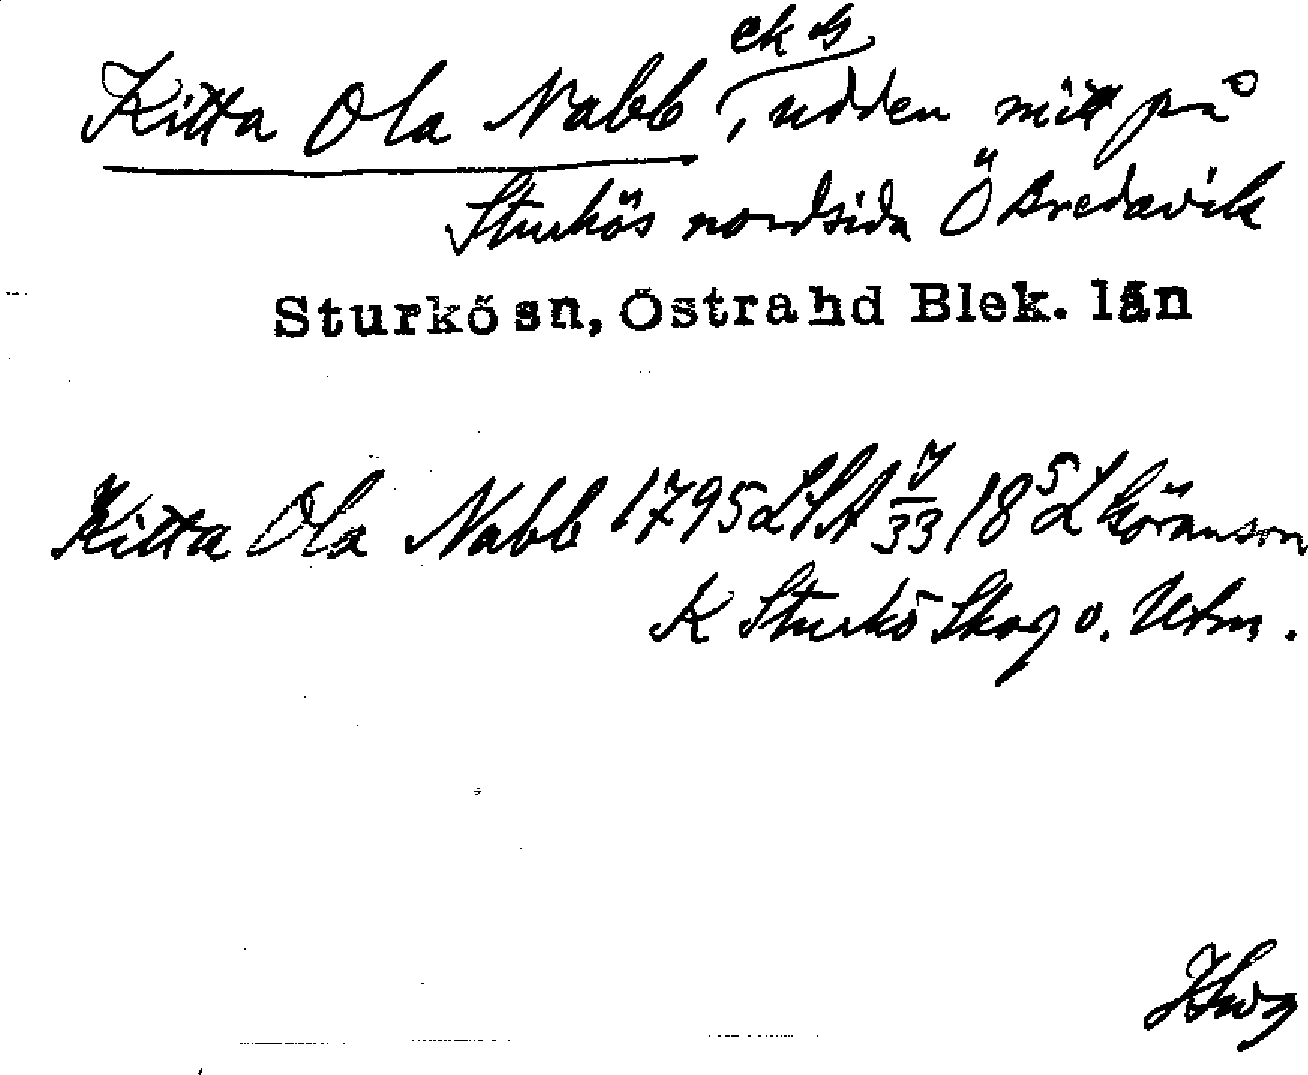 ek bl
Kitta Ola Nabb, udden mitt på
Sturkös nordsida Ö Bredavik
Sturkö sn, Östra hd Blek. län
Kitta Ola Nabb 1795 LSA 7/33 18 5 L Göranson
K Sturkö Skog o. Utm.